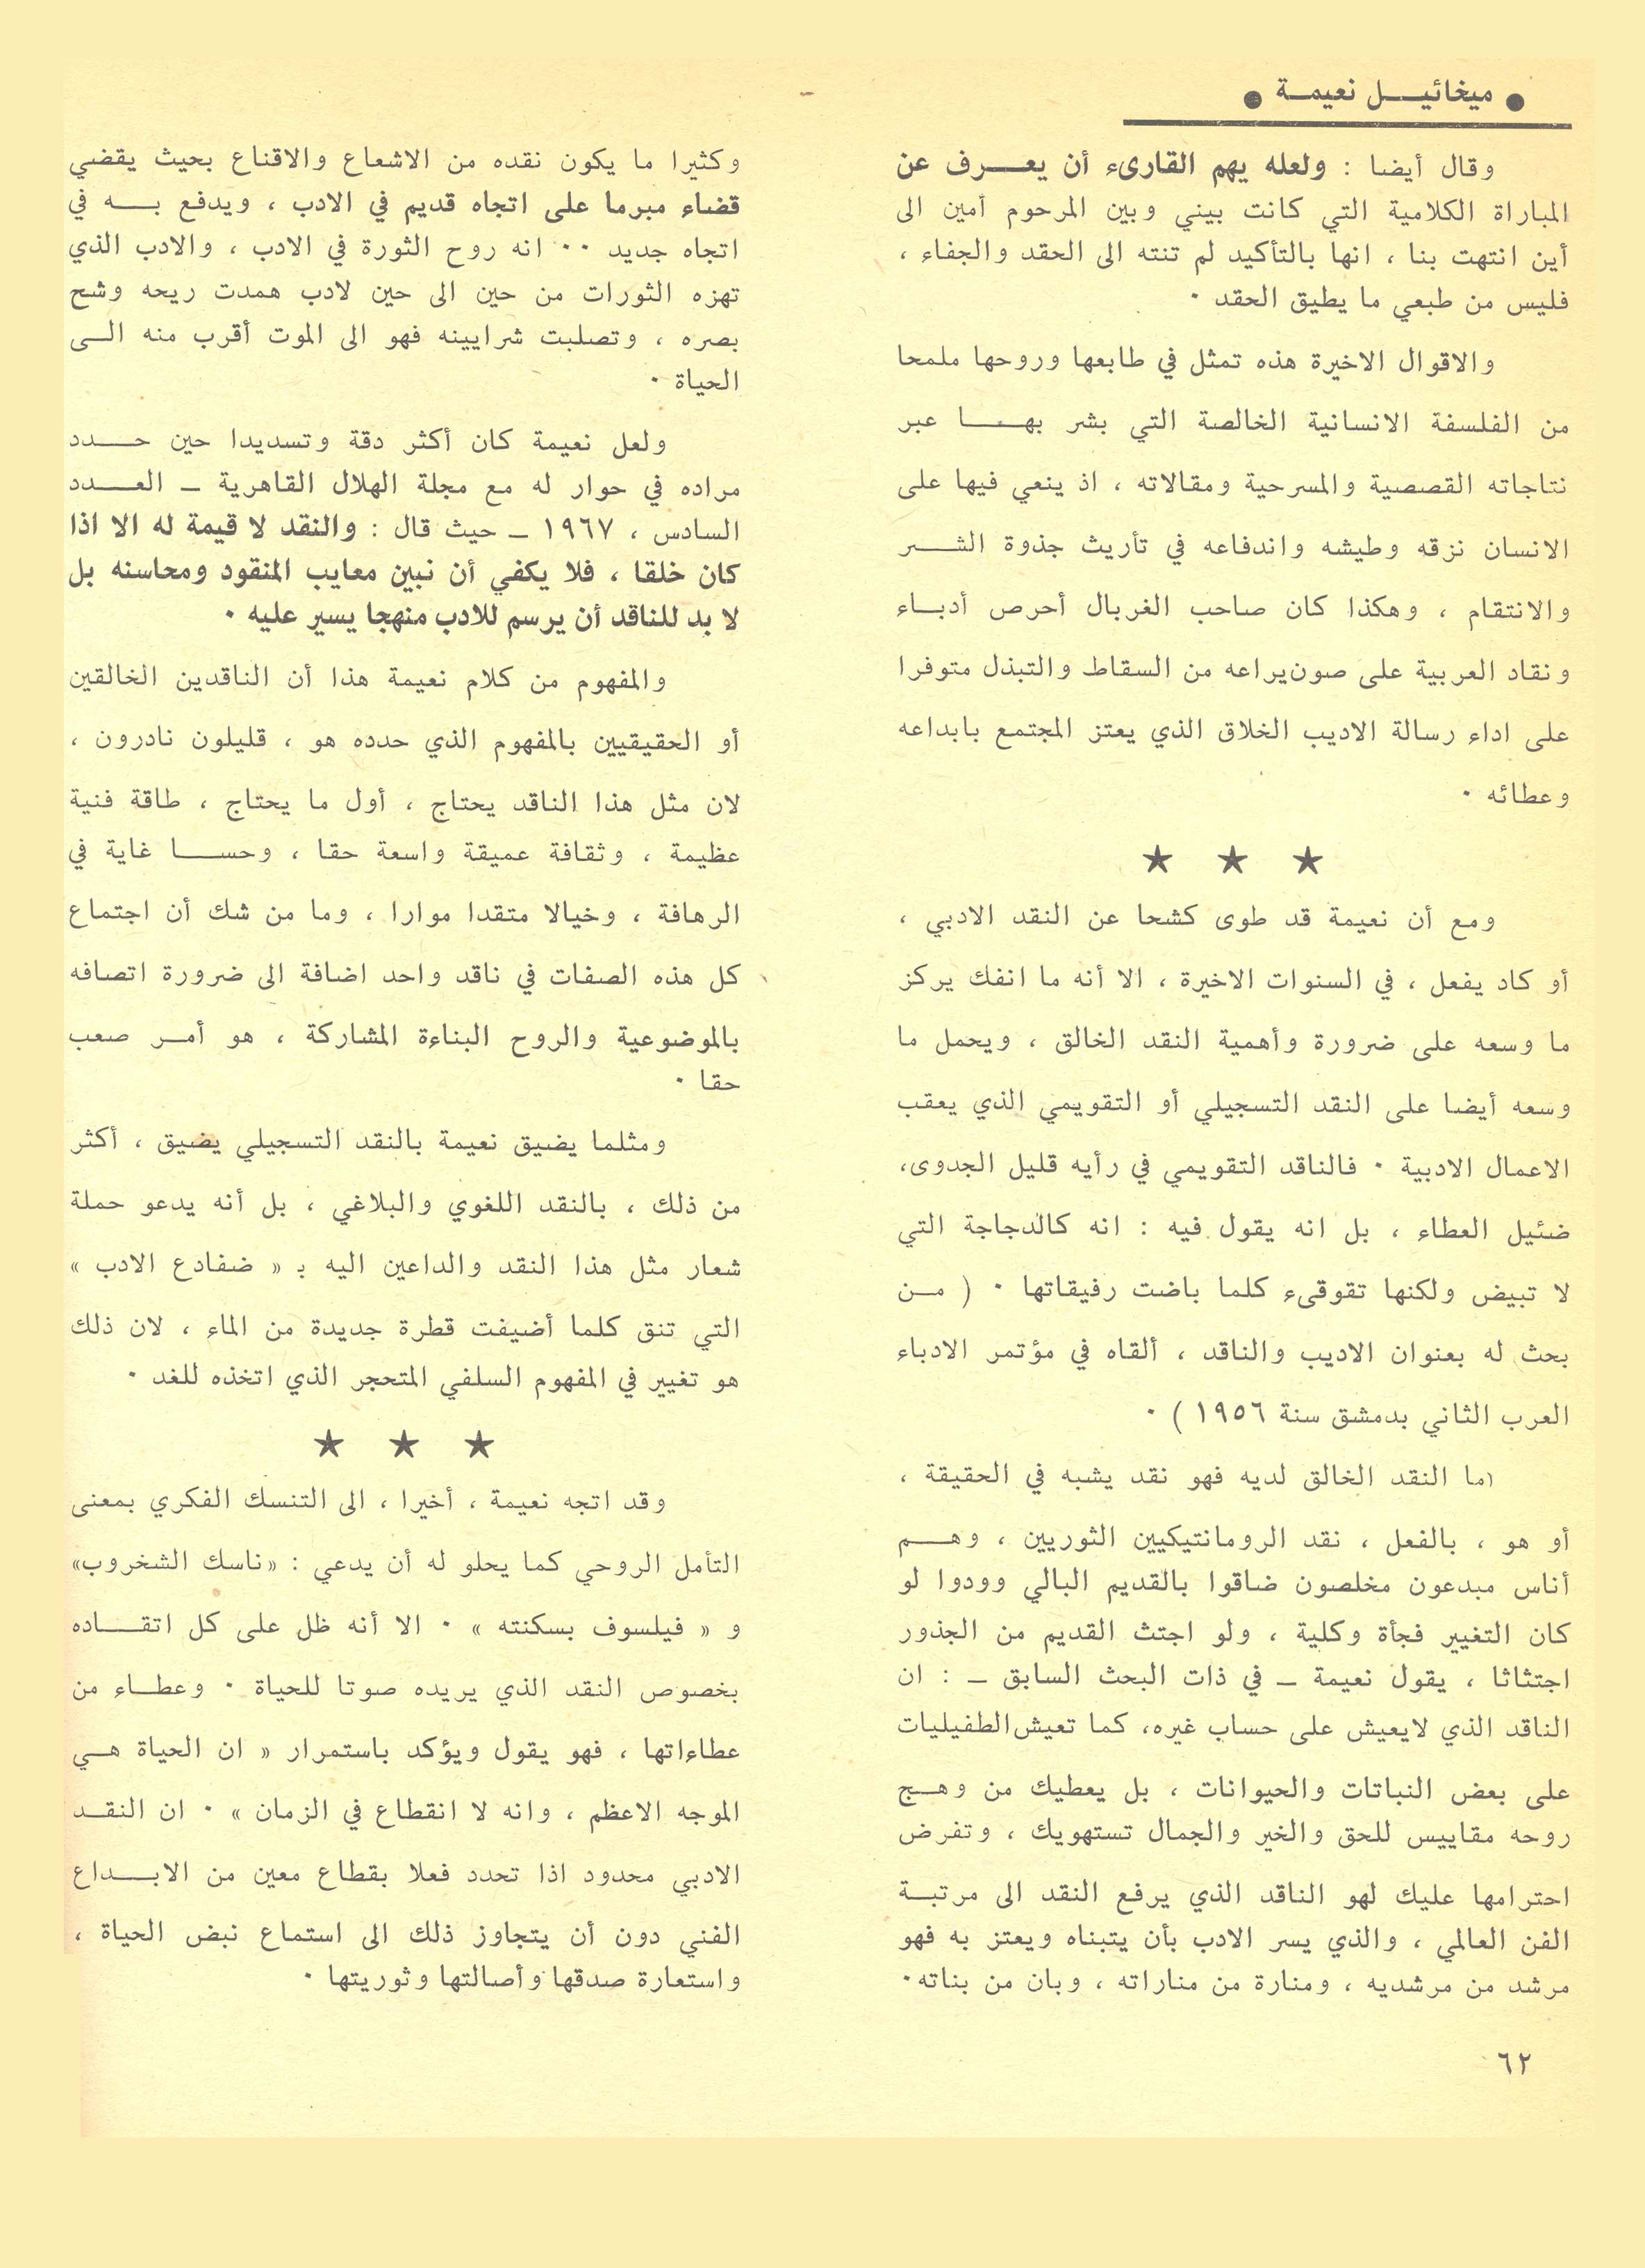 ● ميخائيـــل نعيمـة ●
وقال أيضا : ولعله يهم القارىء أن يعـــرف عن
المباراة الكلامية التي كانت بيني وبين المرحوم أمين الى
أين انتهت بنا ، انها بالتأكيد لم تنته الى الحقد والجفاء ،
فليس من طبعي ما يطيق الحقد ٠
والاقوال الاخيرة هذه تمثل في طابعها وروحها ملمحا
من الفلسفة الانسانية الخالصة التي بشر بهــــا عبر
نتاجاته القصصية والمسرحية ومقالاته ، اذ ينعي فيها على
الانسان نزقه وطيشه واندفاعه في تأريث جذوة الشـــر
والانتقام ، وهكذا كان صاحب الغربال أحرص أدبــاء
ونقاد العربية على صون يراعه من السقاط والتبذل متوفرا
على اداء رسالة الاديب الخلاق الذي يعتز المجتمع بابداعه
وعطائه ٠
★ ★ ★
ومع أن نعيمة قد طوى كشحا عن النقد الادبي ،
أو كاد يفعل ، في السنوات الاخيرة ، الا أنه ما انفك يركز
ما وسعه على ضرورة وأهمية النقد الخالق ، ويحمل ما
وسعه أيضا على النقد التسجيلي أو التقويمي الذي يعقب
الاعمال الادبية ٠ فالناقد التقويمي في رأيه قليل الجدوى،
ضئيل العطاء ، بل انه يقول فيه : انه كالدجاجة التي
لا تبيض ولكنها تقوقىء كلما باضت رفيقاتها ٠ ( مــن
بحث له بعنوان الاديب والناقد ، ألقاه في مؤتمر الادباء
العرب الثاني بدمشق سنة ١٩٥٦ ) ٠
اما النقد الخالق لديه فهو نقد يشبه في الحقيقة ،
أو هو ، بالفعل ، نقد الرومانتيكيين الثوريين ، وهـــم
أناس مبدعون مخلصون ضاقوا بالقديم البالي وودوا لو
كان التغيير فجأة وكلية ، ولو اجتث القديم من الجذور
اجتثاثا ، يقول نعيمة ــ في ذات البحث السابق ــ : ان
الناقد الذي لايعيش على حساب غيره، كما تعيش الطفيليات
على بعض النباتات والحيوانات ، بل يعطيك من وهــج
روحه مقاييس للحق والخير والجمال تستهويك ، وتفرض
احترامها عليك لهو الناقد الذي يرفع النقد الى مرتبــة
الفن العالمي ، والذي يسر الادب بأن يتبناه ويعتز به فهو
مرشد من مرشديه ، ومنارة من مناراته ، وبان من بناته٠
وكثيرا ما يكون نقده من الاشعاع والاقناع بحيث يقضي
قضاء مبرما على اتجاه قديم في الادب ، ويدفع بـــه في
اتجاه جديد ٠٠ انه روح الثورة في الادب ، والادب الذي
تهزه الثورات من حين الى حين لادب همدت ريحه وشح
بصره ، وتصلبت شرايينه فهو الى الموت أقرب منه الــى
الحياة ٠
ولعل نعيمة كان أكثر دقة وتسديدا حين حــــدد
مراده في حوار له مع مجلة الهلال القاهرية ــ العـــدد
السادس ، ١٩٦٧ ــ حيث قال : والنقد لا قيمة له الا اذا
كان خلقا ، فلا يكفي أن نبين معايب المنقود ومحاسنه بل
لا بد للناقد أن يرسم للادب منهجا يسير عليه ٠
والمفهوم من كلام نعيمة هذا أن الناقدين الخالقين
أو الحقيقيين بالمفهوم الذي حدده هو ، قليلون نادرون ،
لان مثل هذا الناقد يحتاج ، أول ما يحتاج ، طاقة فنية
عظيمة ، وثقافة عميقة واسعة حقا ، وحســـا غاية في
الرهافة ، وخيالا متقدا موارا ، وما من شك أن اجتماع
كل هذه الصفات في ناقد واحد اضافة الى ضرورة اتصافه
بالموضوعية والروح البناءة المشاركة ، هو أمــر صعب
حقا ٠
ومثلما يضيق نعيمة بالنقد التسجيلي يضيق ، أكثر
من ذلك ، بالنقد اللغوي والبلاغي ، بل أنه يدعو حملة
شعار مثل هذا النقد والداعين اليه بـ « ضفادع الادب »
التي تنق كلما أضيفت قطرة جديدة من الماء ، لان ذلك
هو تغيير في المفهوم السلفي المتحجر الذي اتخذه للغد ٠
★ ★ ★
وقد اتجه نعيمة ، أخيرا ، الى التنسك الفكري بمعنى
التأمل الروحي كما يحلو له أن يدعي : «ناسك الشخروب»
و « فيلسوف بسكنته » ٠ الا أنه ظل على كل اتقــــاده
بخصوص النقد الذي يريده صوتا للحياة ٠ وعطــاء من
عطاءاتها ، فهو يقول ويؤكد باستمرار « ان الحياة هــي
الموجه الاعظم ، وانه لا انقطاع في الزمان » ٠ ان النقــد
الادبي محدود اذا تحدد فعلا بقطاع معين من الابــــداع
الفني دون أن يتجاوز ذلك الى استماع نبض الحياة ،
واستعارة صدقها وأصالتها وثوريتها ٠
٦٢